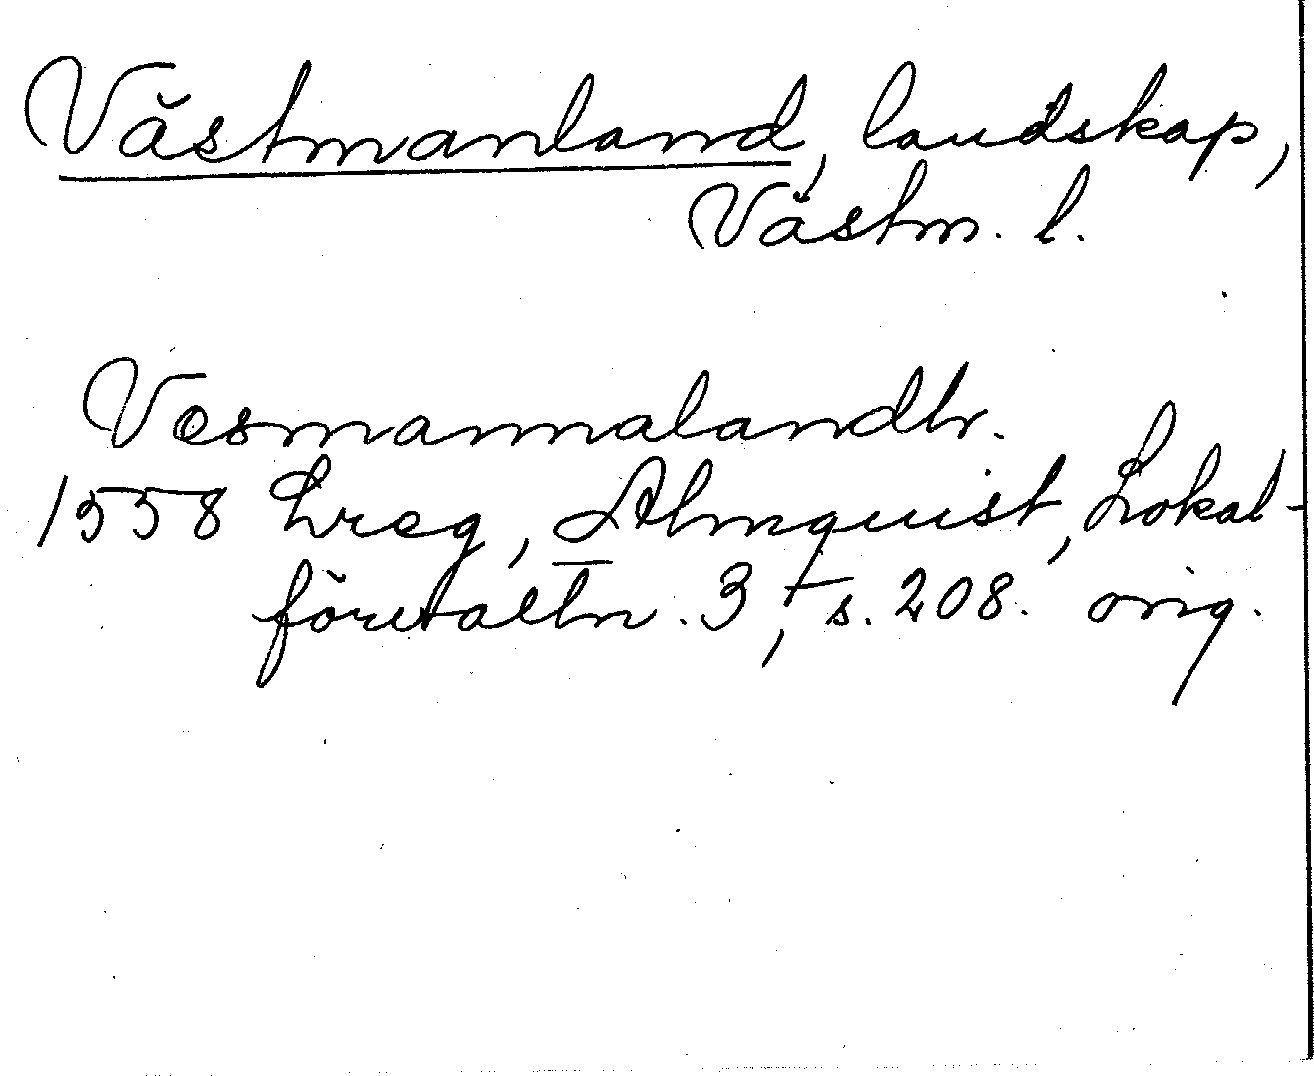 Västmanland, landskap,
Västm. l.
Væsmannalandhr.
1558 Lreg, Almquist, Lokal-
förvaltn. 3, s. 208. orig.